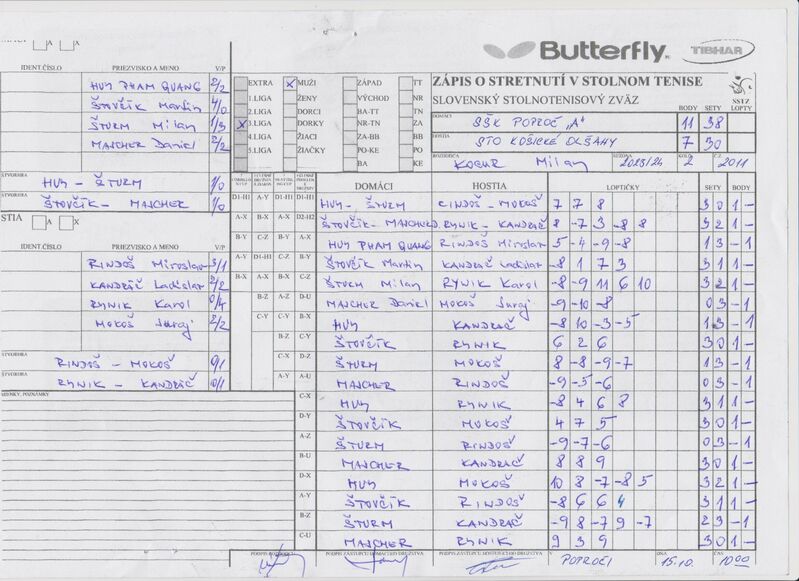 Butterfly TIBHAR
ZÁPIS O STRETNUTÍ V STOLNOM TENISE
SLOVENSKÝ STOLNOTENISOVÝ ZVÄZ SSTZ
BODY SETY LOPTY
DOMÁCI SŠK POPROČ „A" 11 38
HOSTIA STO KOŠICKÉ OLŠANY 7 30
KOGUR Milan 2023/24 2 2011
A X
IDENT.ČÍSLO PRIEZVISKO A MENO V/P
HUY PHAM QUANG 2/2
ŠTOVČÍK Martin 4/0
ŠTURM Milan 1/3
MASCHER Daniel 2/2
HUY - ŠTURM 1/0
ŠTOVČÍK - MASCHER 1/0
STIA A X
IDENT.ČÍSLO PRIEZVISKO A MENO V/P
RINDOŠ Miroslav 3/1
KANDRÁČ Ladislav 2/2
RYNIK Karol 0/4
MOKOŠ Juraj 2/2
RINDOŠ - MOKOŠ 0/1
RYNIK - KANDRÁČ 0/1
EXTRA X MUŽI ZÁPAD TT
1.LIGA ŽENY VÝCHOD NR
2.LIGA DORCI BA-TT TN
X 3.LIGA DORKY NR-TN ZA
4.LIGA ŽIACI ZA-BB BB
5.LIGA ŽIAČKY PO-KE PO
BA KE
DOMÁCI HOSTIA LOPTIČKY SETY BODY
D1-H1 A-Y D1-H1 D1-H1 HUY - ŠTURM RINDOŠ - MOKOŠ 7 7 8 3 0 1 -
A-X B-X A-X D2-H2 ŠTOVČÍK - MASCHER RYNIK - KANDRÁČ 8 -7 3 -8 8 3 2 1 -
B-Y C-Z B-Y A-X HUY PHAM QUANG RINDOŠ Miroslav 5 -4 -9 -8 1 3 - 1
A-Y D1-H1 C-Z B-Y ŠTOVČÍK Martin KANDRÁČ Ladislav -8 1 7 3 3 1 1 -
B-X A-X B-X C-Z ŠTURM Milan RYNIK Karol -8 -9 11 6 10 3 2 1 -
B-Z A-Z D-U MASCHER Daniel MOKOŠ Juraj -9 -10 -8 0 3 - 1
C-Y C-Y B-X HUY KANDRÁČ -8 10 -3 -5 1 3 - 1
B-Z C-Y ŠTOVČÍK RYNIK 6 2 6 3 0 1 -
C-X D-Z ŠTURM MOKOŠ 8 -8 -9 -7 1 3 - 1
A-Y A-U MASCHER RINDOŠ -9 -5 -6 0 3 - 1
C-X HUY RYNIK -8 4 6 8 3 1 1 -
D-Y ŠTOVČÍK MOKOŠ 4 7 5 3 0 1 -
A-Z ŠTURM RINDOŠ -9 -7 -6 0 3 - 1
B-U MASCHER KANDRÁČ 8 8 9 3 0 1 -
D-X HUY MOKOŠ 10 8 -7 -8 5 3 2 1 -
A-Y ŠTOVČÍK RINDOŠ -8 6 6 4 3 1 1 -
B-Z ŠTURM KANDRÁČ -9 8 -7 9 -7 2 3 - 1
C-U MASCHER RYNIK 9 3 9 3 0 1 -
PODPIS ZÁSTUPCU DOMÁCEHO DRUŽSTVA PODPIS ZÁSTUPCU HOSŤUJÚCEHO DRUŽSTVA V POPROČI DŇA 15.10. ČAS 10:00